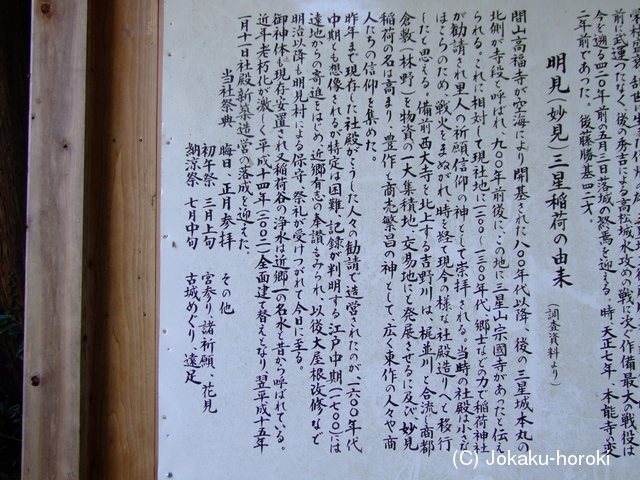 前に武運つたなく、後の秀吉による高松城水攻めの戦に次ぐ作備最大の戦役は
今を遡る四二〇年前の五月三日落城の終焉を迎える。時、天正七年、本能寺の変
二年前であった。後藤勝基四二才。
明見(妙見)三星稲荷の由来
(調査資料より)
開山高福寺が空海により開基された八〇〇年代以降、後の三星城本丸の
北側が寺段と呼ばれ、九〇〇年前後に、この地に三星山宗國寺があったと伝え
られる。これに相対して現社地に二〇〇~三〇〇年代、郷士などの力で稲荷神社
が勧請され里人の祈願信仰の神として崇拝される。当時の社殿は小さな
ほこらのため、戦火をまぬがれ、時を経て現今の様な社殿造りへと移行
したと思える。備前西大寺を北上する吉野川は、梶並川と合流し商都
倉敷(林野)を物資の一大集積地、交易地にと発展させるに及び妙見
稲荷の名は高まり、豊作と商売繁昌の神として、広く東作の人々や商
人たちの信仰を集めた。
昨年まで現存した社殿がこうした人々の勧請で造営されたのが一六〇〇年代
中期とも想像されるが特定は困難、記録が判明する江戸中期(一七〇〇)には
遠地からの寄進をはじめ、近郷有志の奉讃もみられ、以後大屋根改修などで
明治以降も明見村による保守、祭礼が受けつがれて今日に至る。
御神体も現存安置され又稲荷谷の浄水は近郷一の名水と昔から呼ばれている。
近年老朽化が激しく平成十四年(二〇〇二)全面建て替えとなり翌平成十五年
一月十一日社殿新築造営の落成を迎えた。
当社祭典 晦日、正月参拝 その他
初午祭 三月上旬 宮参り、諸祈願、花見
納涼祭 七月中旬 古城めぐり、遠足
(C) Jokaku-horoki